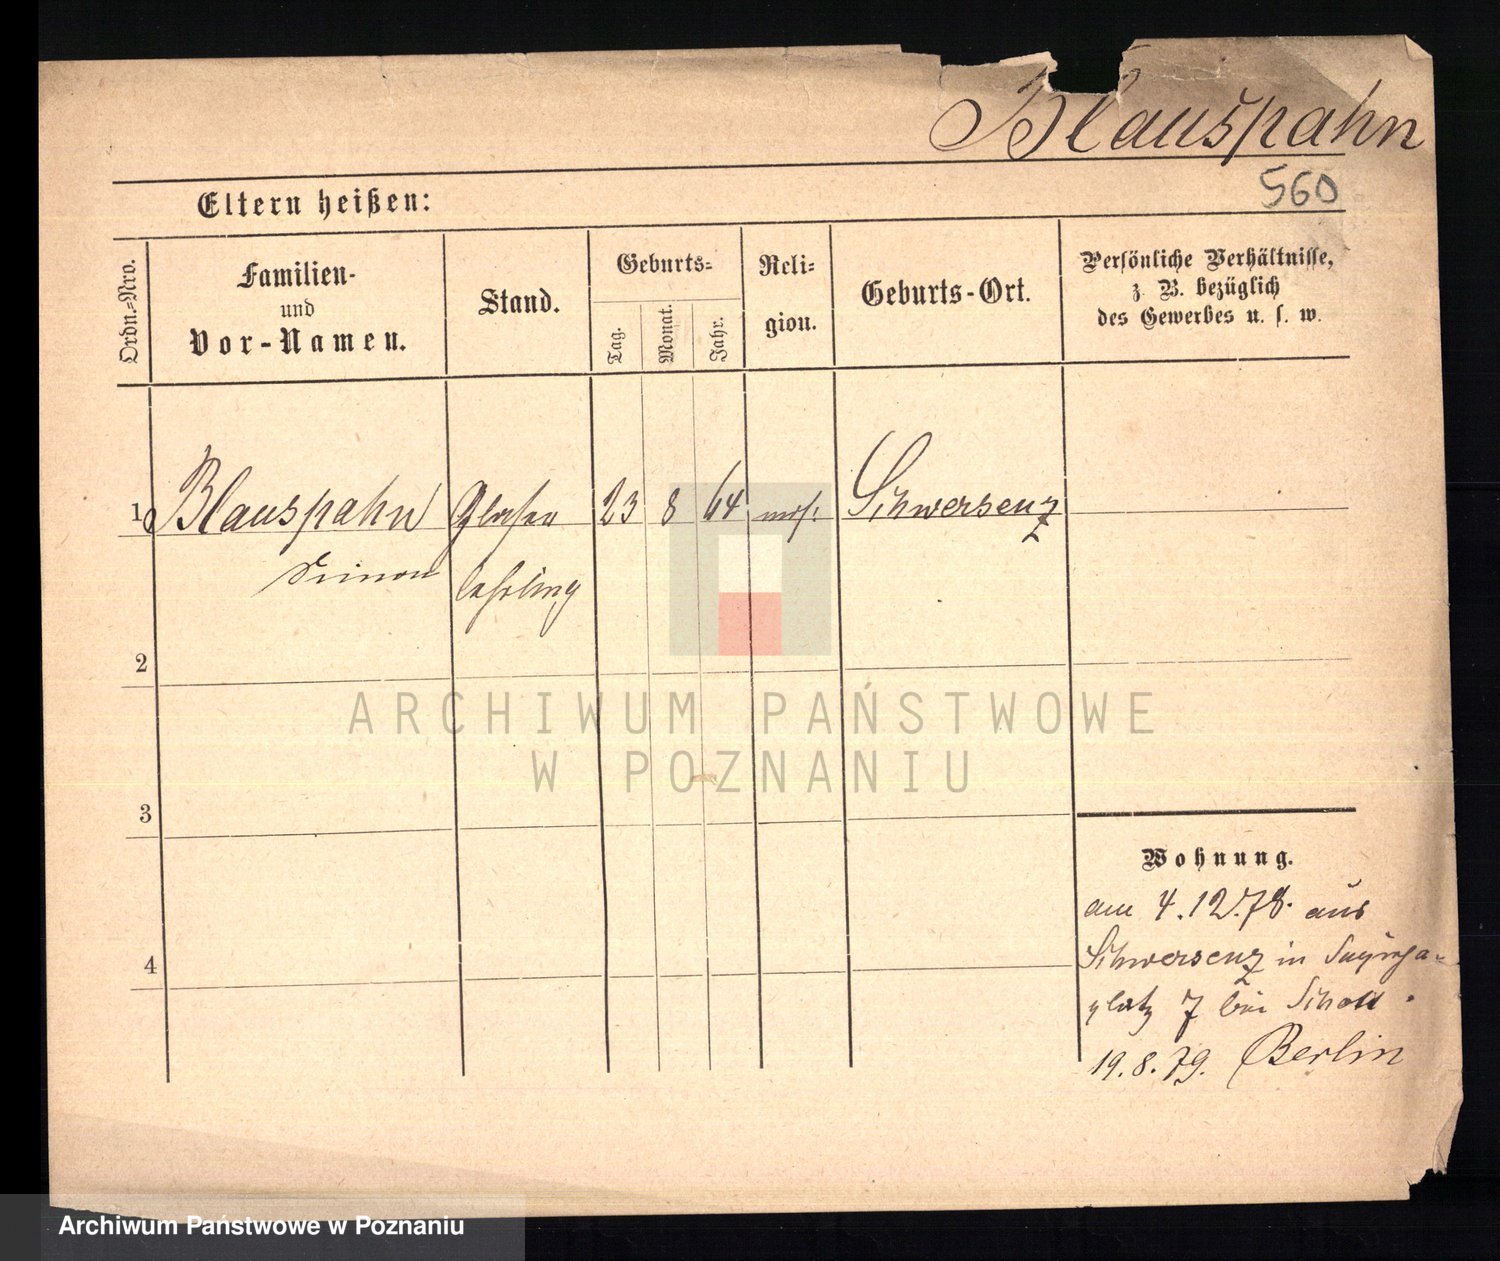 Blauspahn
560
Eltern heißen:
Ordn.-Nro.
Familien-
und
Vor-Namen.
Stand.
Geburts-
Tag.
Monat.
Jahr.
Reli-
gion.
Geburts-Ort.
Persönliche Verhältnisse,
z. B. bezüglich
des Gewerbes u. s. w.
1 Blauspahn Glaser 23 8 64 mos. Schwersenz
Simon lehrling
2
3
4
Wohnung.
am 4.12.78. aus
Schwersenz in Sapieha-
platz 7 bei
19.8.79. Berlin
ARCHIWUM PAŃSTWOWE
W POZNANIU
Archiwum Państwowe w Poznaniu